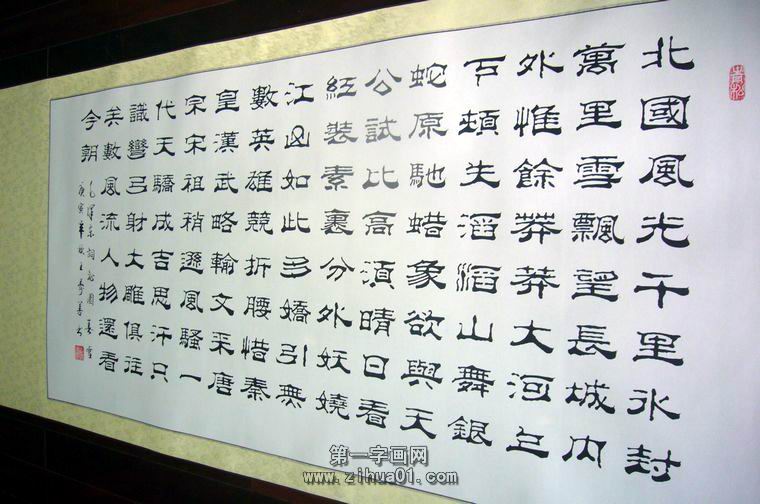 北國風光千里冰封
萬里雪飄望長城內
外惟餘莽莽大河上
下頓失滔滔山舞銀
蛇原馳蜡象欲與天
公試比高須晴日看
紅裝素裹分外妖嬈
江山如此多嬌引無
數英雄競折腰惜秦
皇漢武略輸文采唐
宋宋祖稍遜風騷一
代天驕成吉思汗只
識彎弓射大雕俱往
矣數風流人物還看
今朝
毛澤東詞沁園春雪
庚寅年秋
第一字画网
www.zihua01.com